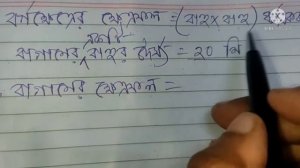 বর্গক্ষেত্রের ক্ষেত্রফল = (বাহু × বাহু)
একটি
বাগানের বাহুর দৈর্ঘ্য = ২০ মি
বাগানের ক্ষেত্রফল =